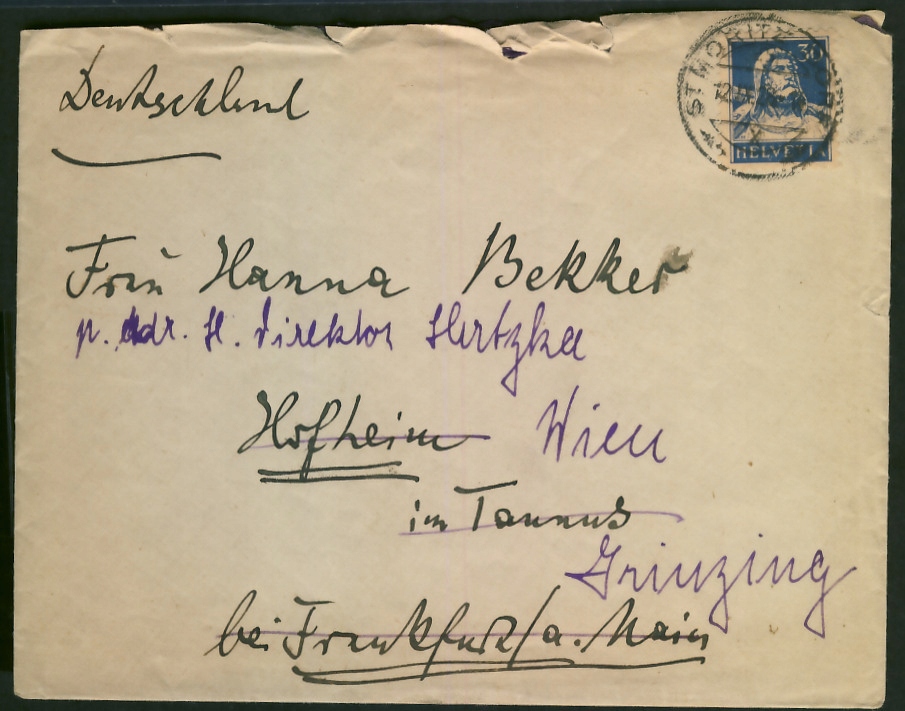 Deutschland
ST MORITZ
12.
30
HELVETIA
Frau Hanna Bekker
p. Adr. H. Direktor Hertzka
Hofheim Wien
im Taunus
Grinzing
bei Frankfurt/a. Main